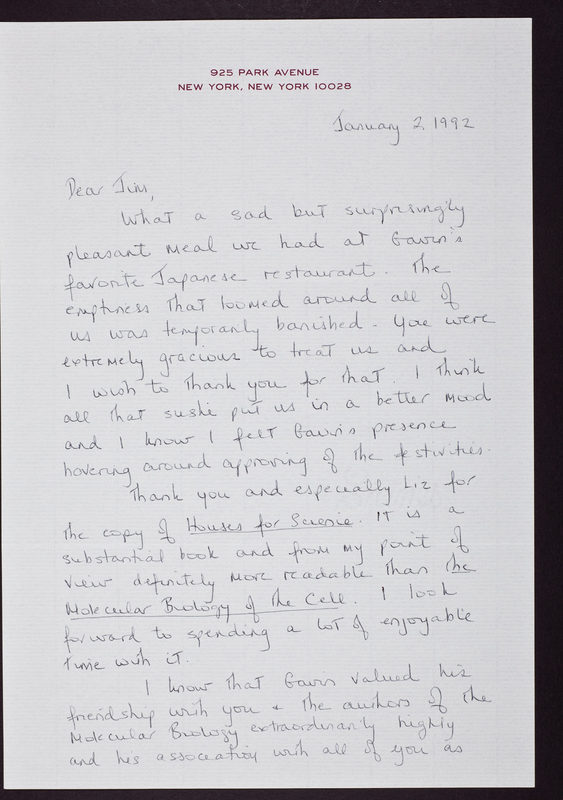 925 PARK AVENUE
NEW YORK, NEW YORK 10028
January 2, 1992
Dear Jim,
What a sad but surprisingly
pleasant meal we had at Gavin's
favorite Japanese restaurant. The
emptiness that loomed around all of
us was temporarily banished. You were
extremely gracious to treat us and
I wish to thank you for that. I think
all that sushi put us in a better mood
and I know I felt Gavin's presence
hovering around approving of the festivities.
Thank you and especially Liz for
the copy of Houses for Science. It is a
substantial book and from my point of
view definitely more readable than the
Molecular Biology of the Cell. I look
forward to spending a lot of enjoyable
time with it.
I know that Gavin valued his
friendship with you & the authors of the
Molecular Biology extraordinarily highly
and his association with all of you as